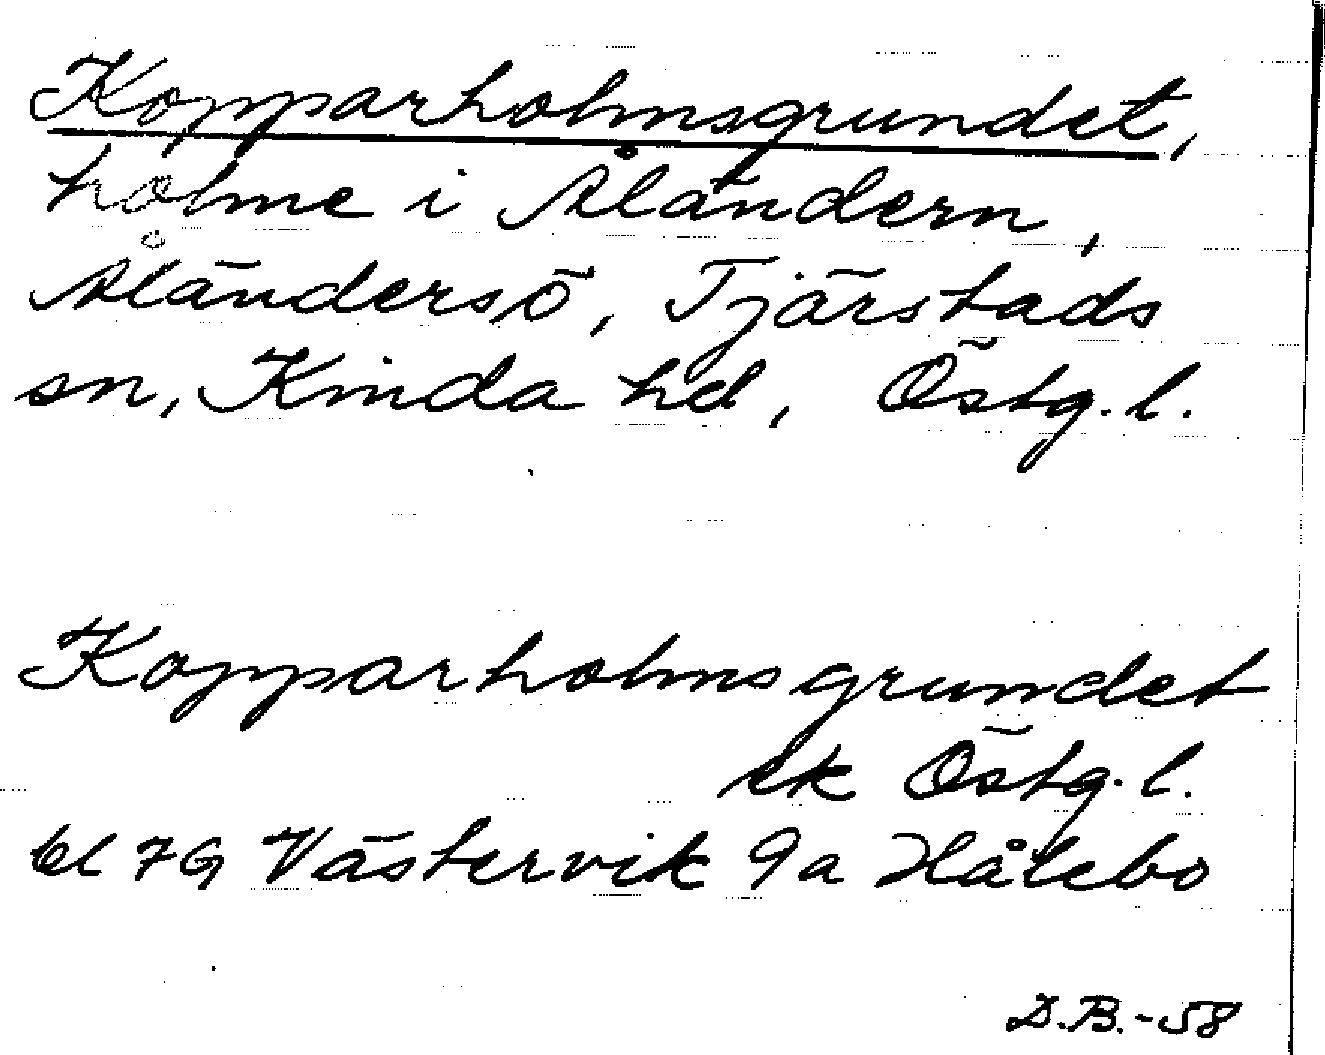 Kopparholmsgrundet,
holme i Åländern,
Åländersö, Tjärstads
sn, Kinda hd, Östg. l.
Kopparholmsgrundet
ek Östg. l.
bl 7G Västervik 9a Hålebo
D.B.-58